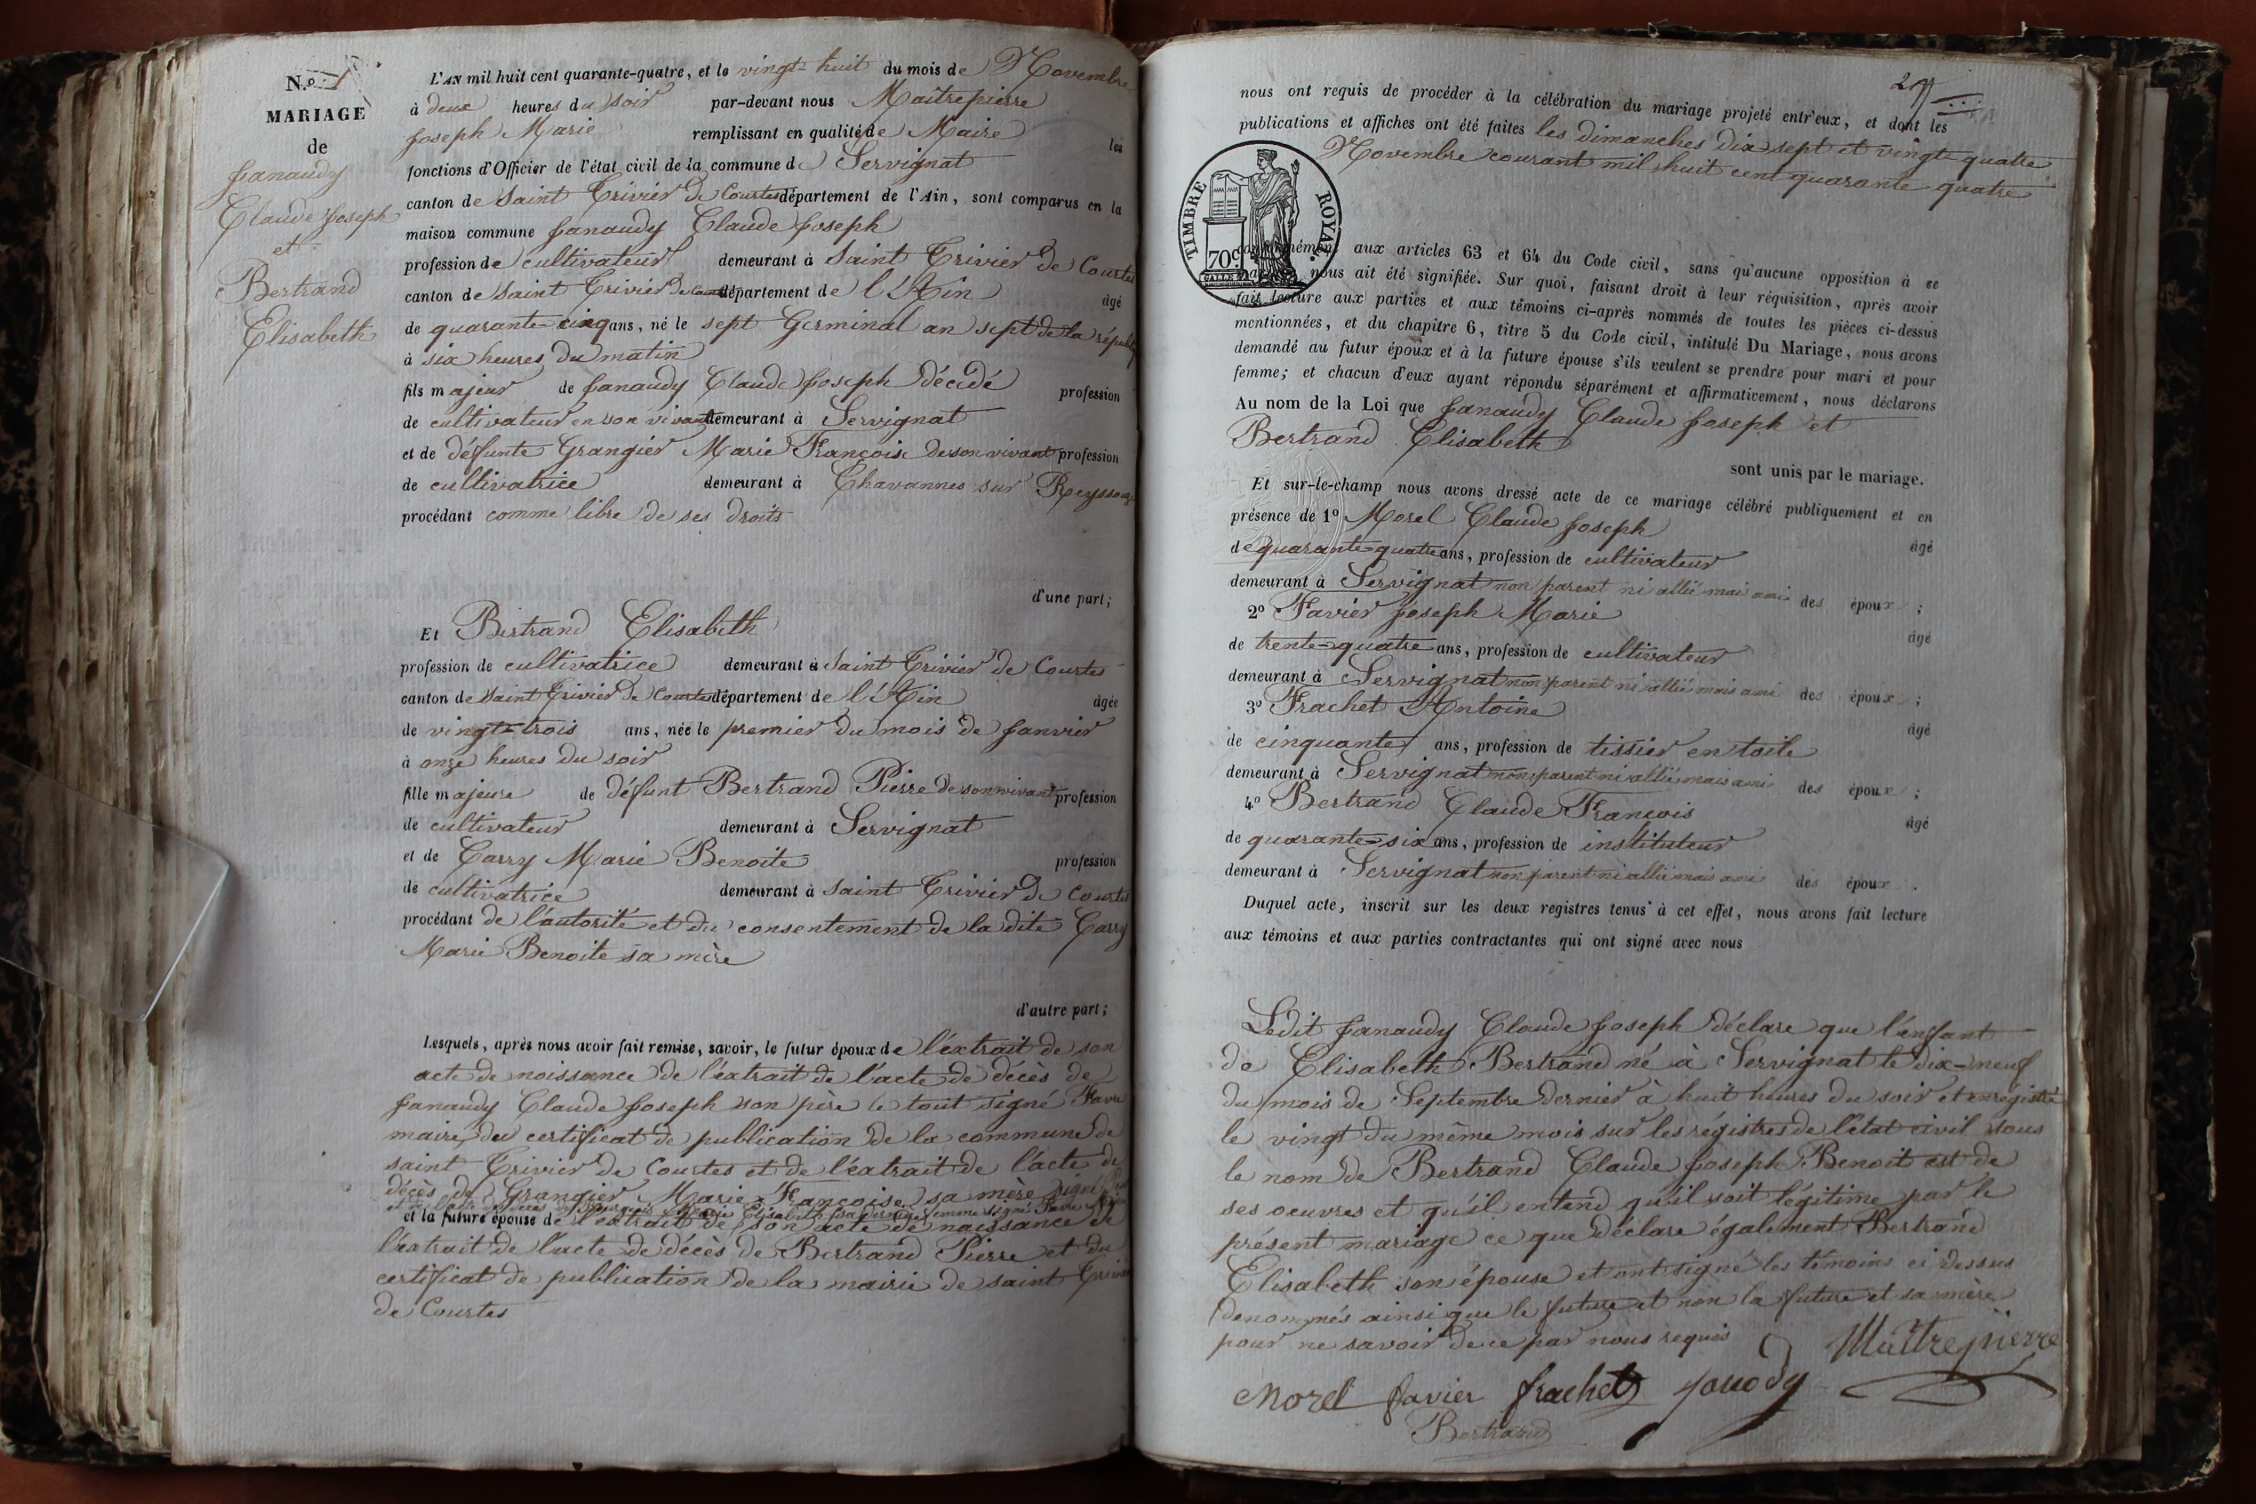 N.º 1
MARIAGE
de
Janaudy
Claude Joseph
et
Bertrand
Elisabeth
L'AN mil huit cent quarante-quatre, et le vingt-huit du mois de Novembre
à deux heures du soir par-devant nous Maîtrepierre
Joseph Marie remplissant en qualité de Maire les
fonctions d'Officier de l'état civil de la commune de Servignat
canton de Saint Trivier de Courtes département de l'Ain, sont comparus en la
maison commune Janaudy Claude Joseph
profession de cultivateur demeurant à Saint Trivier de Courtes
canton de Saint Trivier de Courtes département de l'Ain âgé
de quarante-cinq ans, né le sept Germinal an sept de la républiq
à six heures du matin
fils majeur de Janaudy Claude Joseph décédé profession
de cultivateur en son vivant demeurant à Servignat
et de défunte Grangier Marie Françoise de son vivant profession
de cultivatrice demeurant à Chavannes sur Reyssouze
procédant comme libre de ses droits
d'une part;
Et Bertrand Elisabeth
profession de cultivatrice demeurant à Saint Trivier de Courtes
canton de Saint Trivier de Courtes département de l'Ain âgée
de vingt-trois ans, née le premier du mois de Janvier
à onze heures du soir
fille majeure de défunt Bertrand Pierre de son vivant profession
de cultivateur demeurant à Servignat
et de Carry Marie Benoite profession
de cultivatrice demeurant à Saint Trivier de Courtes
procédant de l'autorité et du consentement de la dite Carry
Marie Benoite sa mère
d'autre part;
Lesquels, après nous avoir fait remise, savoir, le futur époux de l'extrait de son
acte de naissance de l'extrait de l'acte de décès de
Janaudy Claude Joseph son père le tout signé Favre
maire du certificat de publication de la commune de
saint Trivier de Courtes et de l'extrait de l'acte de
décès de Grangier Marie Françoise sa mère signé
et de l'acte de décès de Marie Elisabeth sa femme signé Favre
et la future épouse de l'extrait de son acte de naissance de
l'extrait de l'acte de décès de Bertrand Pierre et du
certificat de publication de la mairie de saint Trivier
de Courtes
nous ont requis de procéder à la célébration du mariage projeté entr'eux, et dont les
publications et affiches ont été faites les dimanches dix sept et vingt-quatre
Novembre courant mil huit cent quarante quatre
TIMBRE ROYAL
70c
conformément aux articles 63 et 64 du Code civil, sans qu'aucune opposition à ce
mariage nous ait été signifiée. Sur quoi, faisant droit à leur réquisition, après avoir
fait lecture aux parties et aux témoins ci-après nommés de toutes les pièces ci-dessus
mentionnées, et du chapitre 6, titre 5 du Code civil, intitulé Du Mariage, nous avons
demandé au futur époux et à la future épouse s'ils veulent se prendre pour mari et pour
femme; et chacun d'eux ayant répondu séparément et affirmativement, nous déclarons
Au nom de la Loi que Janaudy Claude Joseph et
Bertrand Elisabeth
sont unis par le mariage.
Et sur-le-champ nous avons dressé acte de ce mariage célébré publiquement et en
présence de 1º Morel Claude Joseph âgé
de quarante-quatre ans, profession de cultivateur
demeurant à Servignat non parent ni allié mais ami des époux;
2º Favier Joseph Marie âgé
de trente-quatre ans, profession de cultivateur
demeurant à Servignat non parent ni allié mais ami des époux;
3º Frachet Antoine âgé
de cinquante ans, profession de tissier en toile
demeurant à Servignat non parent ni allié mais ami des époux;
4.º Bertrand Claude François âgé
de quarante-six ans, profession de instituteur
demeurant à Servignat non parent ni allié mais ami des époux.
Duquel acte, inscrit sur les deux registres tenus à cet effet, nous avons fait lecture
aux témoins et aux parties contractantes qui ont signé avec nous
Ledit Janaudy Claude Joseph déclare que l'enfant
de Elisabeth Bertrand né à Servignat le dix-neuf
du mois de Septembre dernier à huit heures du soir et enrégistré
le vingt du même mois sur les régistres de l'état civil sous
le nom de Bertrand Claude Joseph Benoit est de
ses oeuvres et qu'il entend qu'il soit légitime par le
présent mariage ce que déclare également Bertrand
Elisabeth son épouse et ont signé les témoins ci dessus
denommés ainsi que le future et non la future et sa mère
pour ne savoir de ce par nous requis
Maîtrepierre
Morel Favier frachet janody
Bertrand